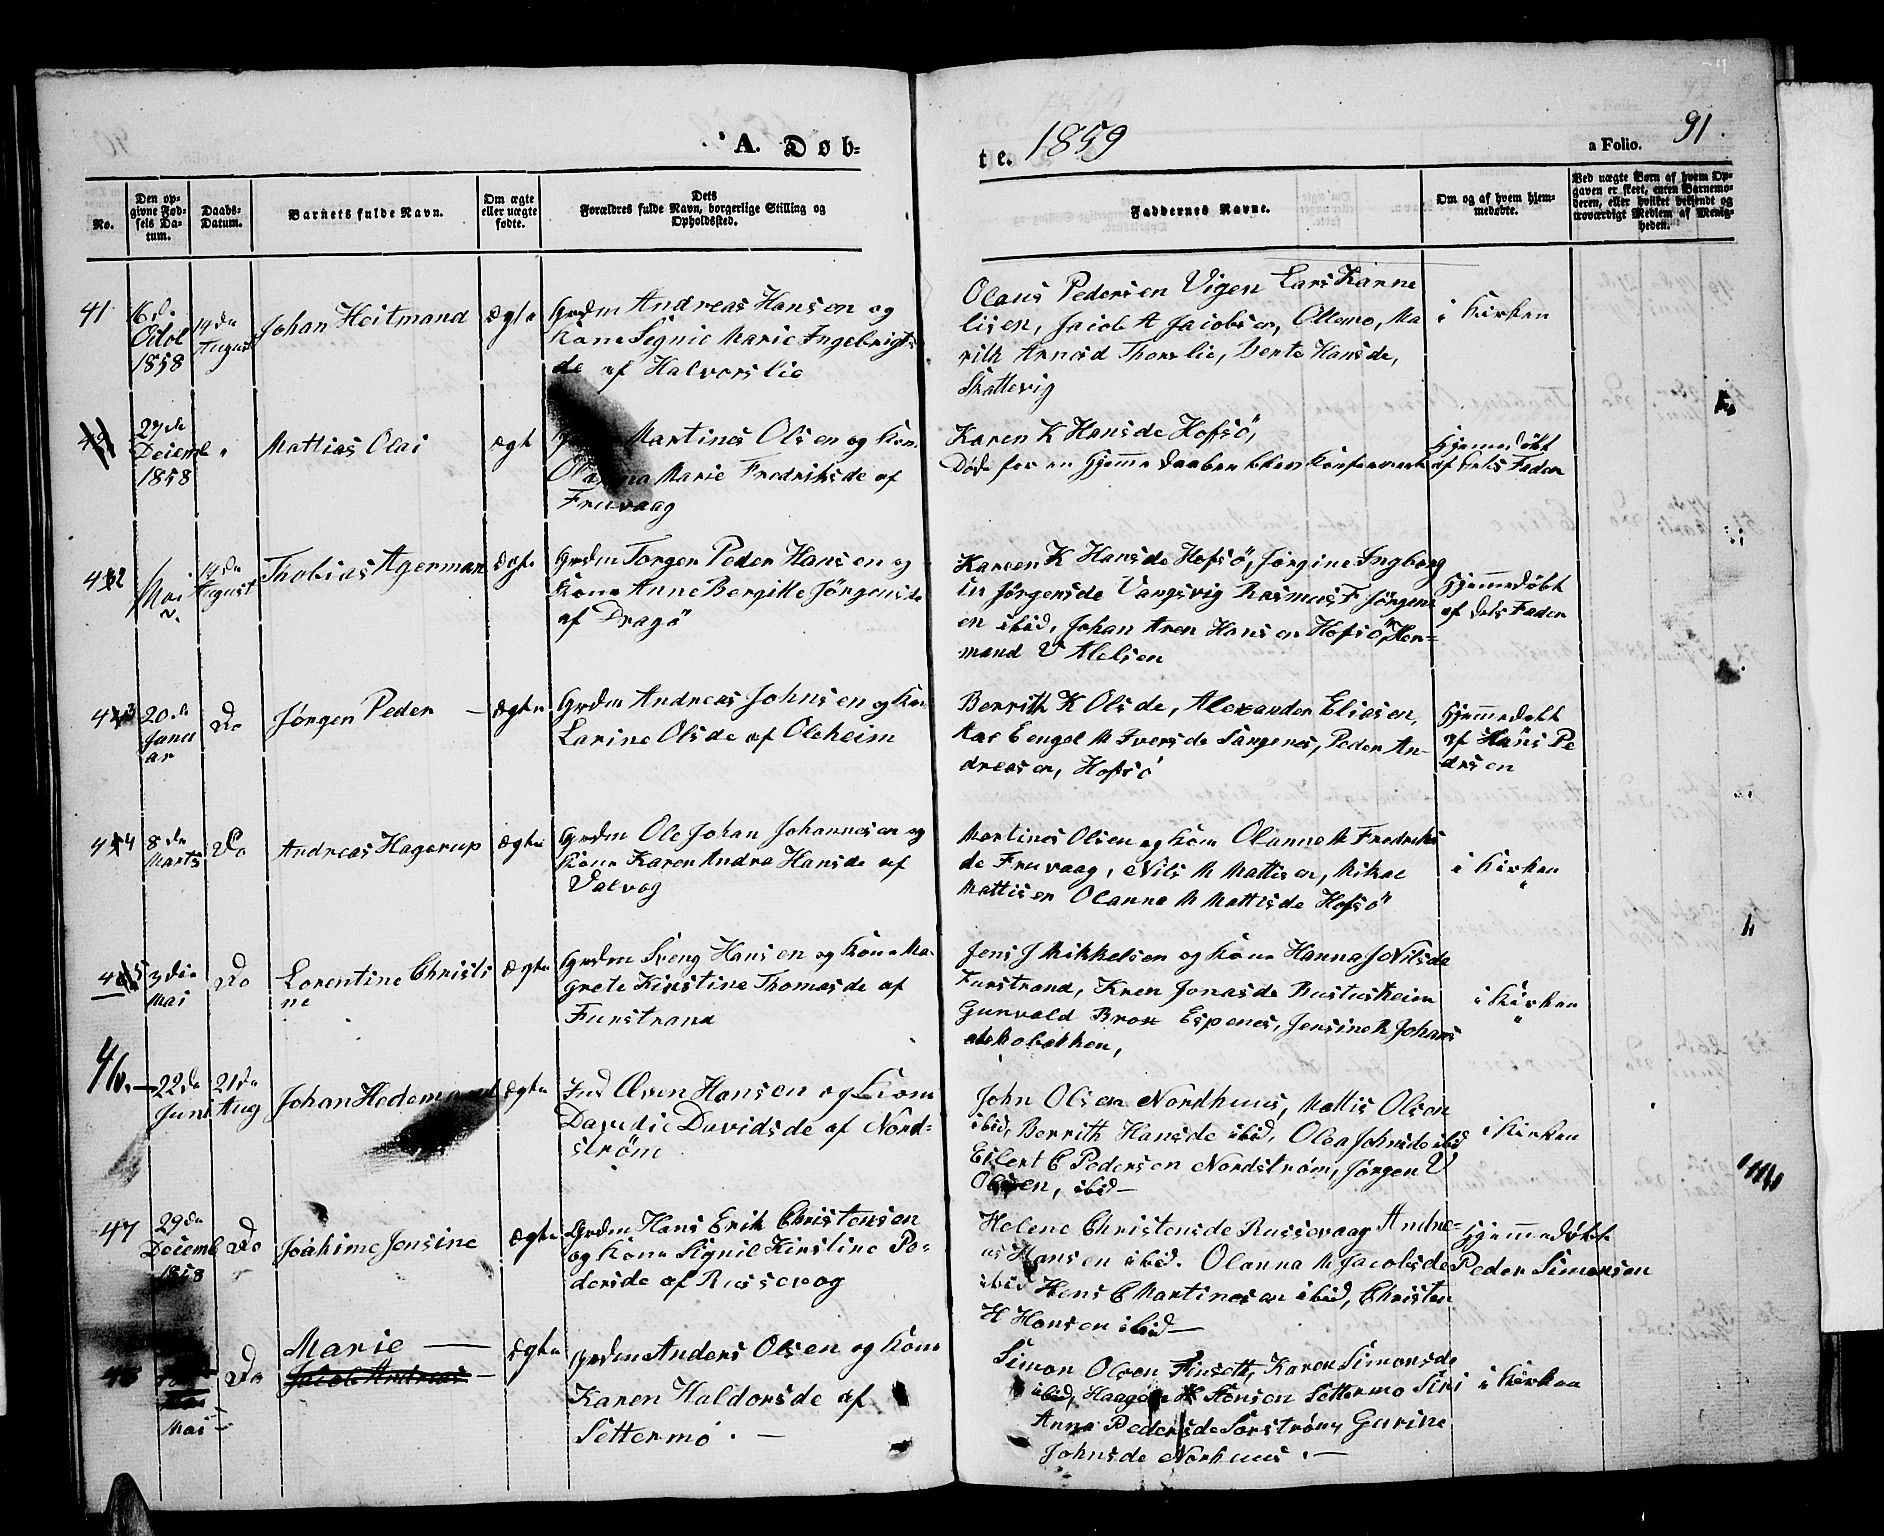 A. Døb=
te. 1859
a Folio. 91.
No.
Den op-
givne Fød-
sels Da-
tum.
Daabs-
Datum.
Barnets fulde Navn.
Om ægte
eller uægte
fødte.
Dets
Forældres fulde Navn, borgerlige Stilling og
Opholdssted.
Faddernes Navne.
Om og af hvem hjem-
medøbte.
Ved uægte Børn af hvem Op-
gaven er skeet, enten Barnemo-
deren, eller hvilket bekjendt og
troværdigt Medlem af Menig-
heden.
41
16de
Octob
1858
14de
August
Johan Heitmand
ægte
Grdm Andreas Hansen og
Kone Signie Marie Ingebrigts
de af Halvorslie
Olaus Pedersen Vigen Lars Kanne
lisen, Jacob A Jacobsen, Ollemo, Ma
rith Arnesd Thorslie, Berte Hansde,
Skattevig
i Kirken
27de
Decemb
1858
"
Mattias Olai
ægt
Martines Olsen og Kon.
Marie Fredriksde af
Fruvaag
Karen K Hansde Hofsö,
Døde før en hjemme daaben blev konfermert
hjemedöbt
af dets Fader
42
Mai
14de
August
Thobias Agerman
ægte
Grdm Torger Peder Hansen og
Kone Anne Bergitte Jörgensde
af Dragö
Kareen K Hansde Hofsö, Jørgine Ingborg
Jørgensde Vangsvig Rasmus F Jörgens
en ibid, Johan Aren Hansen Hofsö, Her=
mand V Alelsen
hjemmedöbt
af dets Fader
43
20de
Janu
ar
Do
Jørgen Peder —
ægte
Grdm Andreas Johnsen og Kon
Larine Olsde af Oleheim
Berrith K Olsde, Alexander Eliasen,
Kar Eengel M Iversde Sangenes, Peder An-
dreasen, Hofsö
hjemmedobt
af Hans Pe
drsen
44
8de
Marts
Do
Andreas Hagerup
ægte
Grdm Ole Johan Johannesen og
Kone Karen Andrea Hansde af
Valvog
Martines Olsen og Kone Olanna M Fredriks
de Fruvaag, Nils M Mattisen, Mikal
Mattisen Olanna M Mattisde Hofsö
i Kirken
45
3die
Mai
Do
Lorentine Christi
ne
ægte
Grdm Sveng Hansen og Kone Ma-
grete Kirstine Thomasde af
Furstrand
Jens J Mikkelsen og Kone Hanna J Nilsde
Furstrand, Kren Jonasde Rustusheim
Gunvald Brox Espenes, Jensine K Johans
de Mobakken,
i Kirken
46. —
22de
Juni
21de
Aug
Johan Hedemand
ægte
Ind Even Hansen og Kone
Davidie Davidsde af Nord=
ström
John Olsen Nordhuus, Mattis Olsen
ibid, Berrith Hansde ibid, Olea Johnsde ibid
Eilert E Pedersen Nordström, Jørgen V
Olsen, ibid —
i Kirken
47
29de
Decemb
1858
Do
Joahime Jensine
ægte
Grdm Hans Erik Christensen
og Kone Signil Kirstine Pe-
dersde af Russevog
Helene Christensde Russevaag Andre=
as Hansen ibid. Olanna M Jacobsde
ibid Hans E Martinesen ibid, Christen
H Hansen ibid —
hjemmedöbt
Peder Simonsen
48
Mai
Do
Marie —
Jacob Andreas —
ægte
Grdm Anders Olsen og Kone
Karen Haldorsde af
Settermo. —
Simon Olsen Finseth, Karen Simonsde
ibid, Haagen H Stensen Settermo Siri
Anna Pedersde Sorström Gurine
Johnsde Norhuus. —
i Kirken